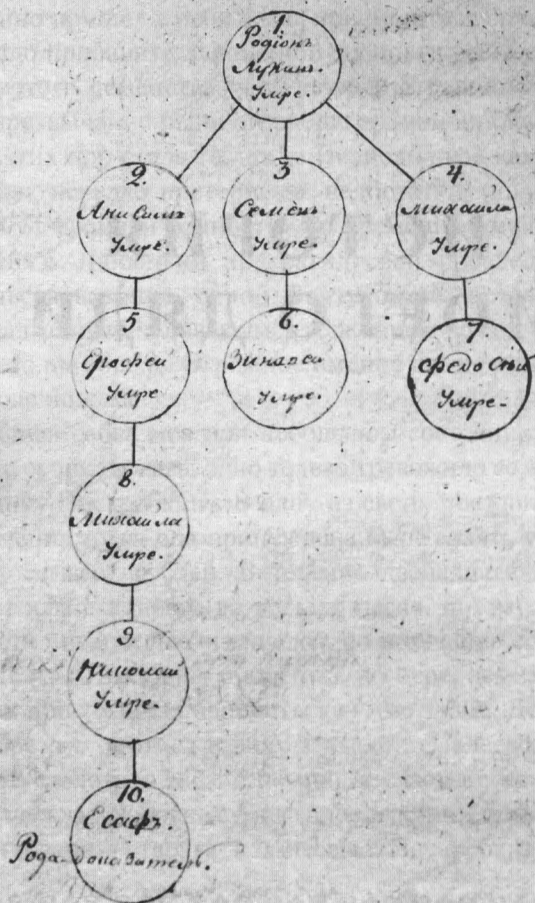 1.
Родіонъ
Лукинъ.
Умре.
2.
Анисимъ
Умре.
3
Семёнъ
Умре.
4.
Михаила
Умре.
5
Ерофеи
Умре
6.
Умре.
7.
Федосѣи
Умре.
8.
Михаила
Умре.
9.
Николай
Умре.
10.
Есафъ.
Рода-доказатель.